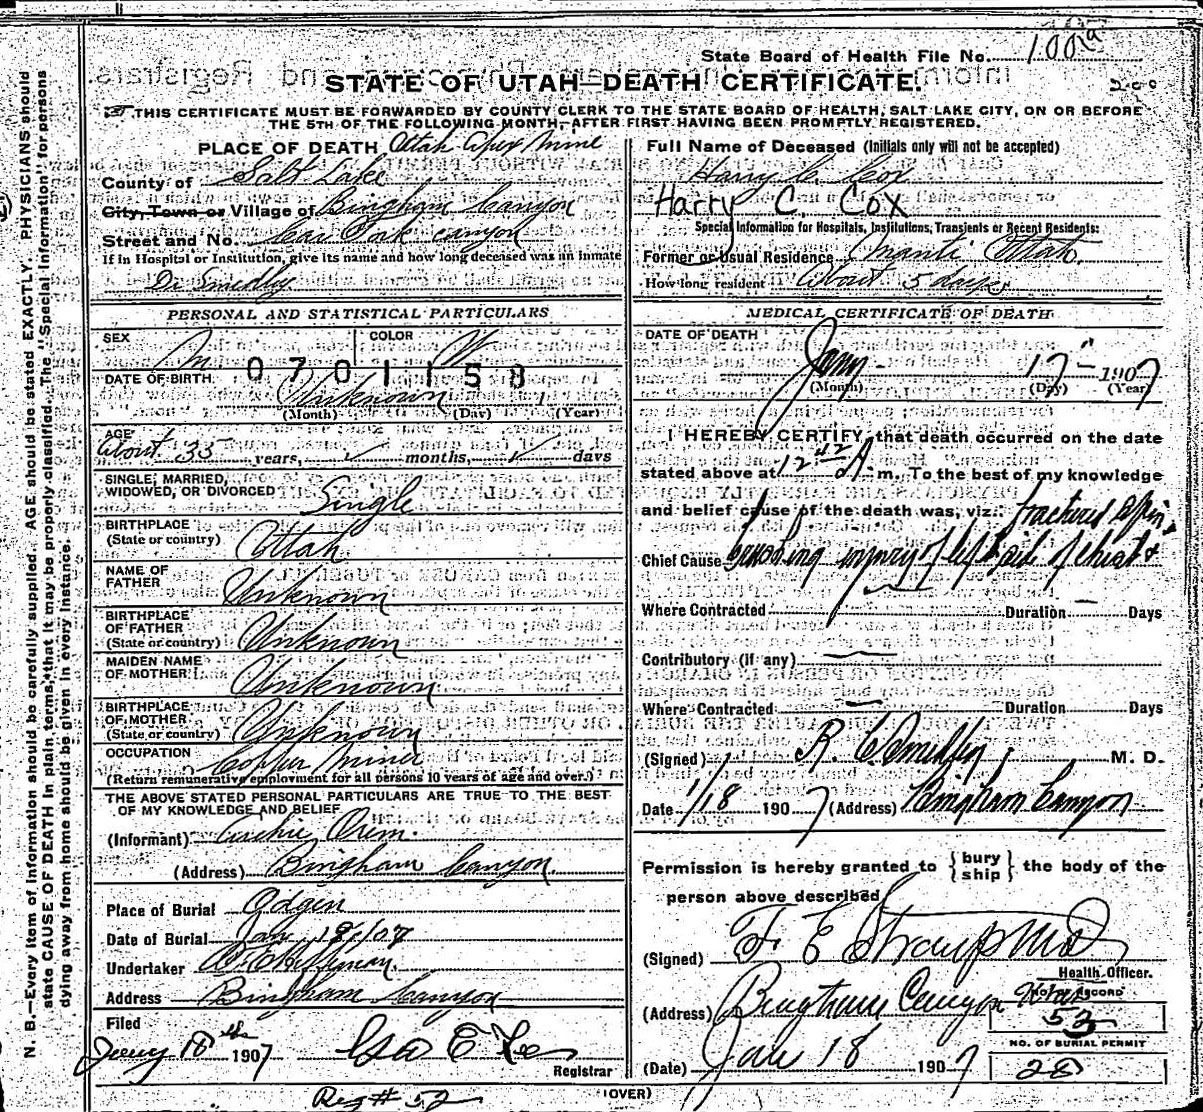 State Board of Health File No. 100a
STATE OF UTAH—DEATH CERTIFICATE.
THIS CERTIFICATE MUST BE FORWARDED BY COUNTY CLERK TO THE STATE BOARD OF HEALTH, SALT LAKE CITY, ON OR BEFORE
THE 5TH OF THE FOLLOWING MONTH, AFTER FIRST HAVING BEEN PROMPTLY REGISTERED.
PLACE OF DEATH Utah Apex Mine
County of Salt Lake
City, Town or Village of Bingham Canyon
Street and No. Car Fork canyon
If in Hospital or Institution, give its name and how long deceased was an inmate
Dr Smedley
Full Name of Deceased (Initials only will not be accepted)
Harry C. Cox
Harry C. Cox
Special Information for Hospitals, Institutions, Transients or Recent Residents:
Former or Usual Residence Manti Utah.
How long resident About 5 days
PERSONAL AND STATISTICAL PARTICULARS
SEX M COLOR W
0701158
DATE OF BIRTH Unknown
(Month) (Day) (Year)
AGE About 35 years, months, days
SINGLE, MARRIED, WIDOWED, OR DIVORCED Single
BIRTHPLACE (State or country) Utah
NAME OF FATHER Unknown
BIRTHPLACE OF FATHER (State or country) Unknown
MAIDEN NAME OF MOTHER Unknown
BIRTHPLACE OF MOTHER (State or country) Unknown
OCCUPATION Copper Miner
(Return remunerative employment for all persons 10 years of age and over.)
THE ABOVE STATED PERSONAL PARTICULARS ARE TRUE TO THE BEST
OF MY KNOWLEDGE AND BELIEF
(Informant) Archie Orem.
(Address) Bingham Canyon.
Place of Burial Ogden
Date of Burial Jan 19/07
Undertaker
Address Bingham Canyon
Filed
Jany 18th 1907
Registrar
Reg # 52
MEDICAL CERTIFICATE OF DEATH
DATE OF DEATH
Jany. 17" 1907
(Month) (Day) (Year)
I HEREBY CERTIFY, that death occurred on the date
stated above at 12 42 A. m. To the best of my knowledge
and belief cause of the death was, viz.: fractured spine
Chief Cause crushing injury of left side of chest &
Where Contracted Duration — Days
Contributory (if any) —
Where Contracted — Duration Days
(Signed) R. C. Smedley. M. D.
Date 1/18 1907 (Address) Bingham Canyon
Permission is hereby granted to {bury ship} the body of the
person above described
(Signed) F E Straup MD
Health Officer.
(Address) Bingham Canyon Utah
NO. OF RECORD
53
NO. OF BURIAL PERMIT
28
(Date) Jan 18 1907
(OVER)
N. B.—Every item of information should be carefully supplied. AGE should be stated EXACTLY. PHYSICIANS should
state CAUSE OF DEATH in plain terms, that it may be properly classified. The "Special Information" for persons
dying away from home should be given in every instance.